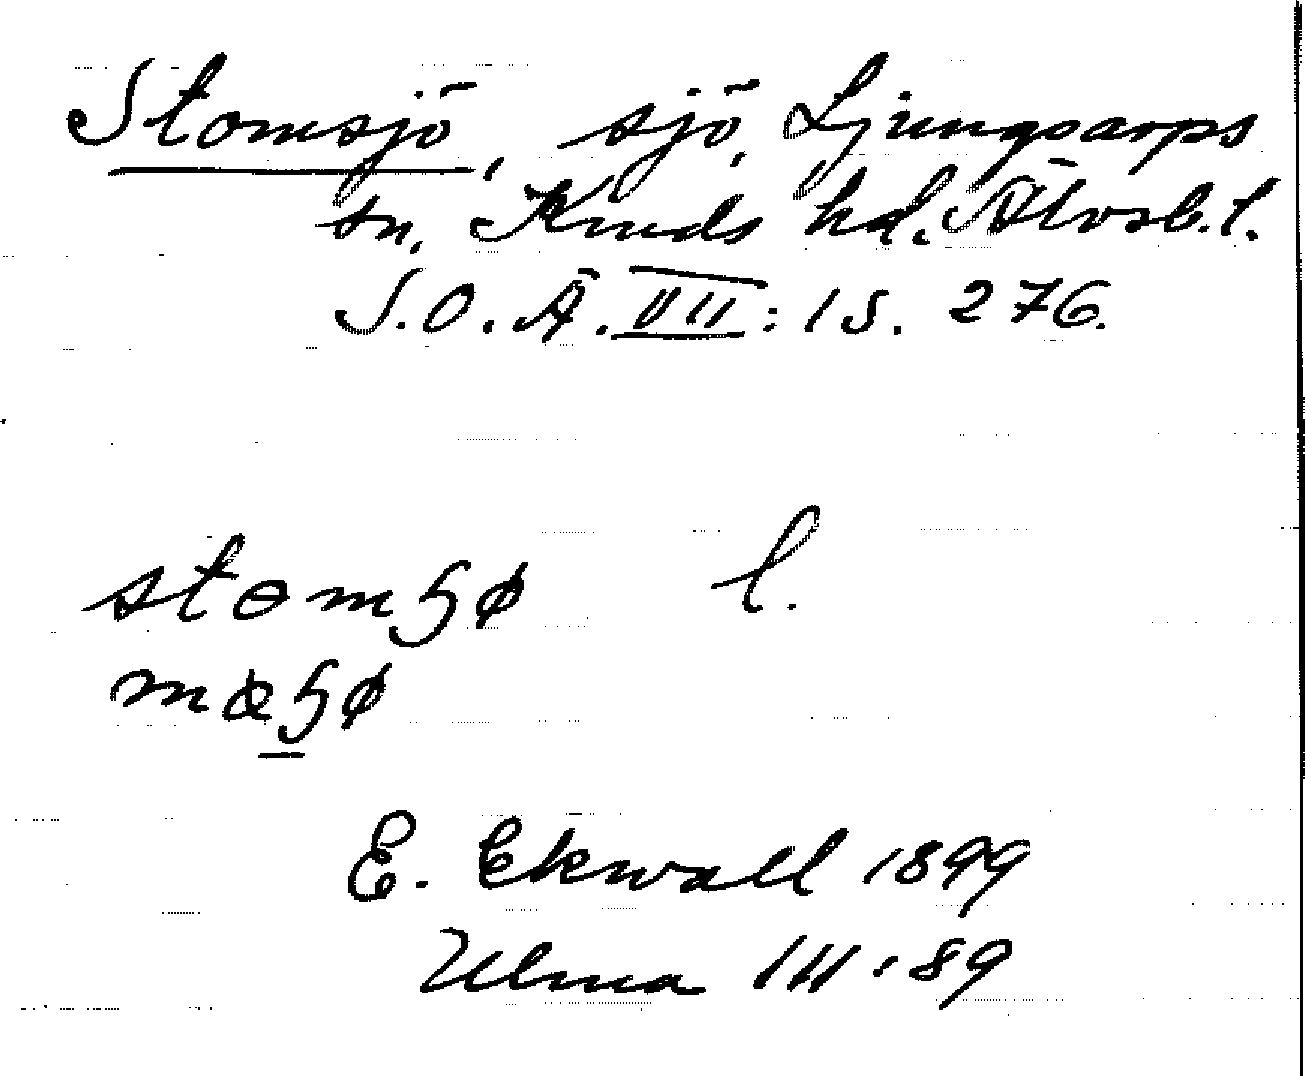 Stomsjö, sjö, Ljungsarps
sn, Kinds hd. Älvsb. l.
S.O.Ä. VII: 1 S. 276.
stɵmɧø l.
mæɧø
E. Ekwall 1899
Ulma 111:89